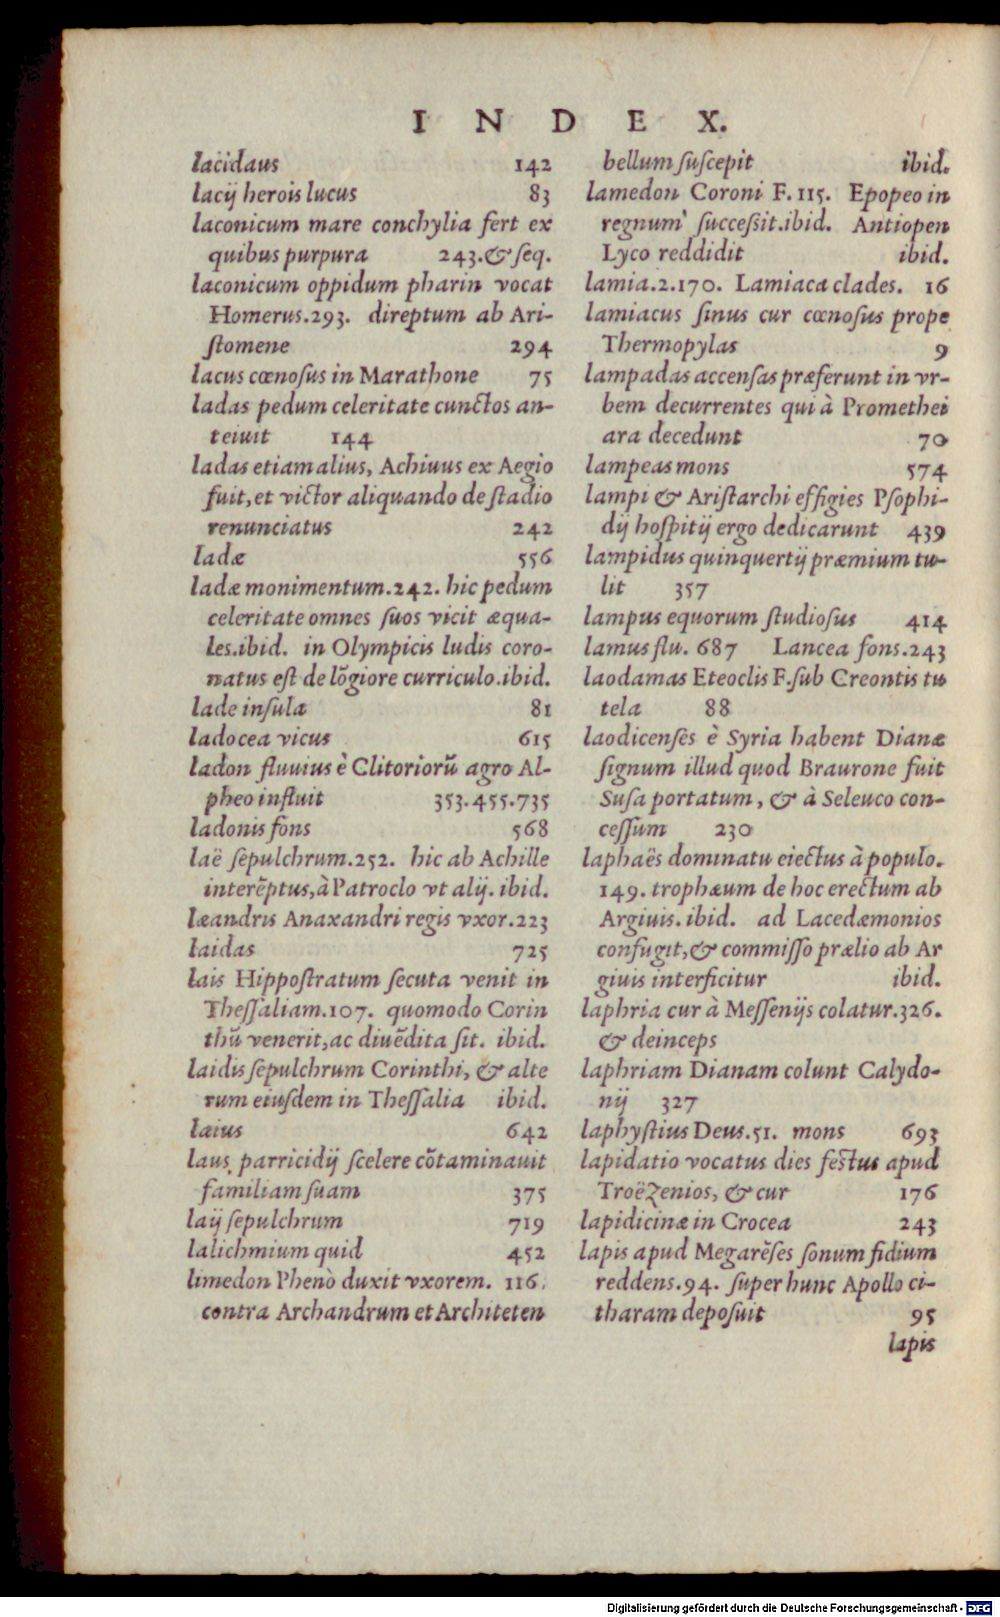 INDEX.
lacidaus 142
lacij herois lucus 83
laconicum mare conchylia fert ex
quibus purpura 243.& seq.
laconicum oppidum pharin vocat
Homerus.293. direptum ab Ari-
stomene 294
lacus cœnosus in Marathone 75
ladas pedum celeritate cunctos an-
teiuit 144
ladas etiam alius, Achiuus ex Aegio
fuit, et victor aliquando de stadio
renunciatus 242
ladæ 556
ladæ monimentum.242. hic pedum
celeritate omnes suos vicit æqua-
les.ibid. in Olympicis ludis coro-
natus est de lõgiore curriculo.ibid.
lade insula 81
ladocea vicus 615
ladon fluuius è Clitoriorũ agro Al-
pheo influit 353.455.735
ladonis fons 568
laë sepulchrum.252. hic ab Achille
interẽptus, à Patroclo vt alij. ibid.
læandris Anaxandri regis vxor.223
laidas 725
lais Hippostratum secuta venit in
Thessaliam.107. quomodo Corin
thũ venerit, ac diuẽdita sit. ibid.
laidis sepulchrum Corinthi, & alte
rum eiusdem in Thessalia ibid.
laius 642
laus parricidij scelere cõtaminauit
familiam suam 375
laij sepulchrum 719
lalichmium quid 452
limedon Phenò duxit vxorem. 116.
contra Archandrum et Architeten
bellum suscepit ibid.
lamedon Coroni F.115. Epopeo in
regnum successit.ibid. Antiopen
Lyco reddidit ibid.
lamia.2.170. Lamiaca clades. 16
lamiacus sinus cur cœnosus prope
Thermopylas 9
lampadas accensas præferunt in vr-
bem decurrentes qui à Promethei
ara decedunt 70
lampeas mons 574
lampi & Aristarchi effigies Psophi-
dij hospitij ergo dedicarunt 439
lampidus quinquertij præmium tu-
lit 357
lampus equorum studiosus 414
lamus flu. 687 Lancea fons.243
laodamas Eteoclis F.sub Creontis tu
tela 88
laodicenses è Syria habent Dianæ
signum illud quod Braurone fuit
Susa portatum, & à Seleuco con-
cessum 230
laphaës dominatu eiectus à populo.
149. trophæum de hoc erectum ab
Argiuis.ibid. ad Lacedæmonios
confugit, & commisso prælio ab Ar
giuis interficitur ibid.
laphria cur à Messenijs colatur.326.
& deinceps
laphriam Dianam colunt Calydo-
nij 327
laphystius Deus.51. mons 693
lapidatio vocatus dies festus apud
Troëzenios, & cur 176
lapidicinæ in Crocea 243
lapis apud Megarẽses sonum fidium
reddens.94. super hunc Apollo ci-
tharam deposuit 95
lapis
Digitalisierung gefördert durch die Deutsche Forschungsgemeinschaft - DFG